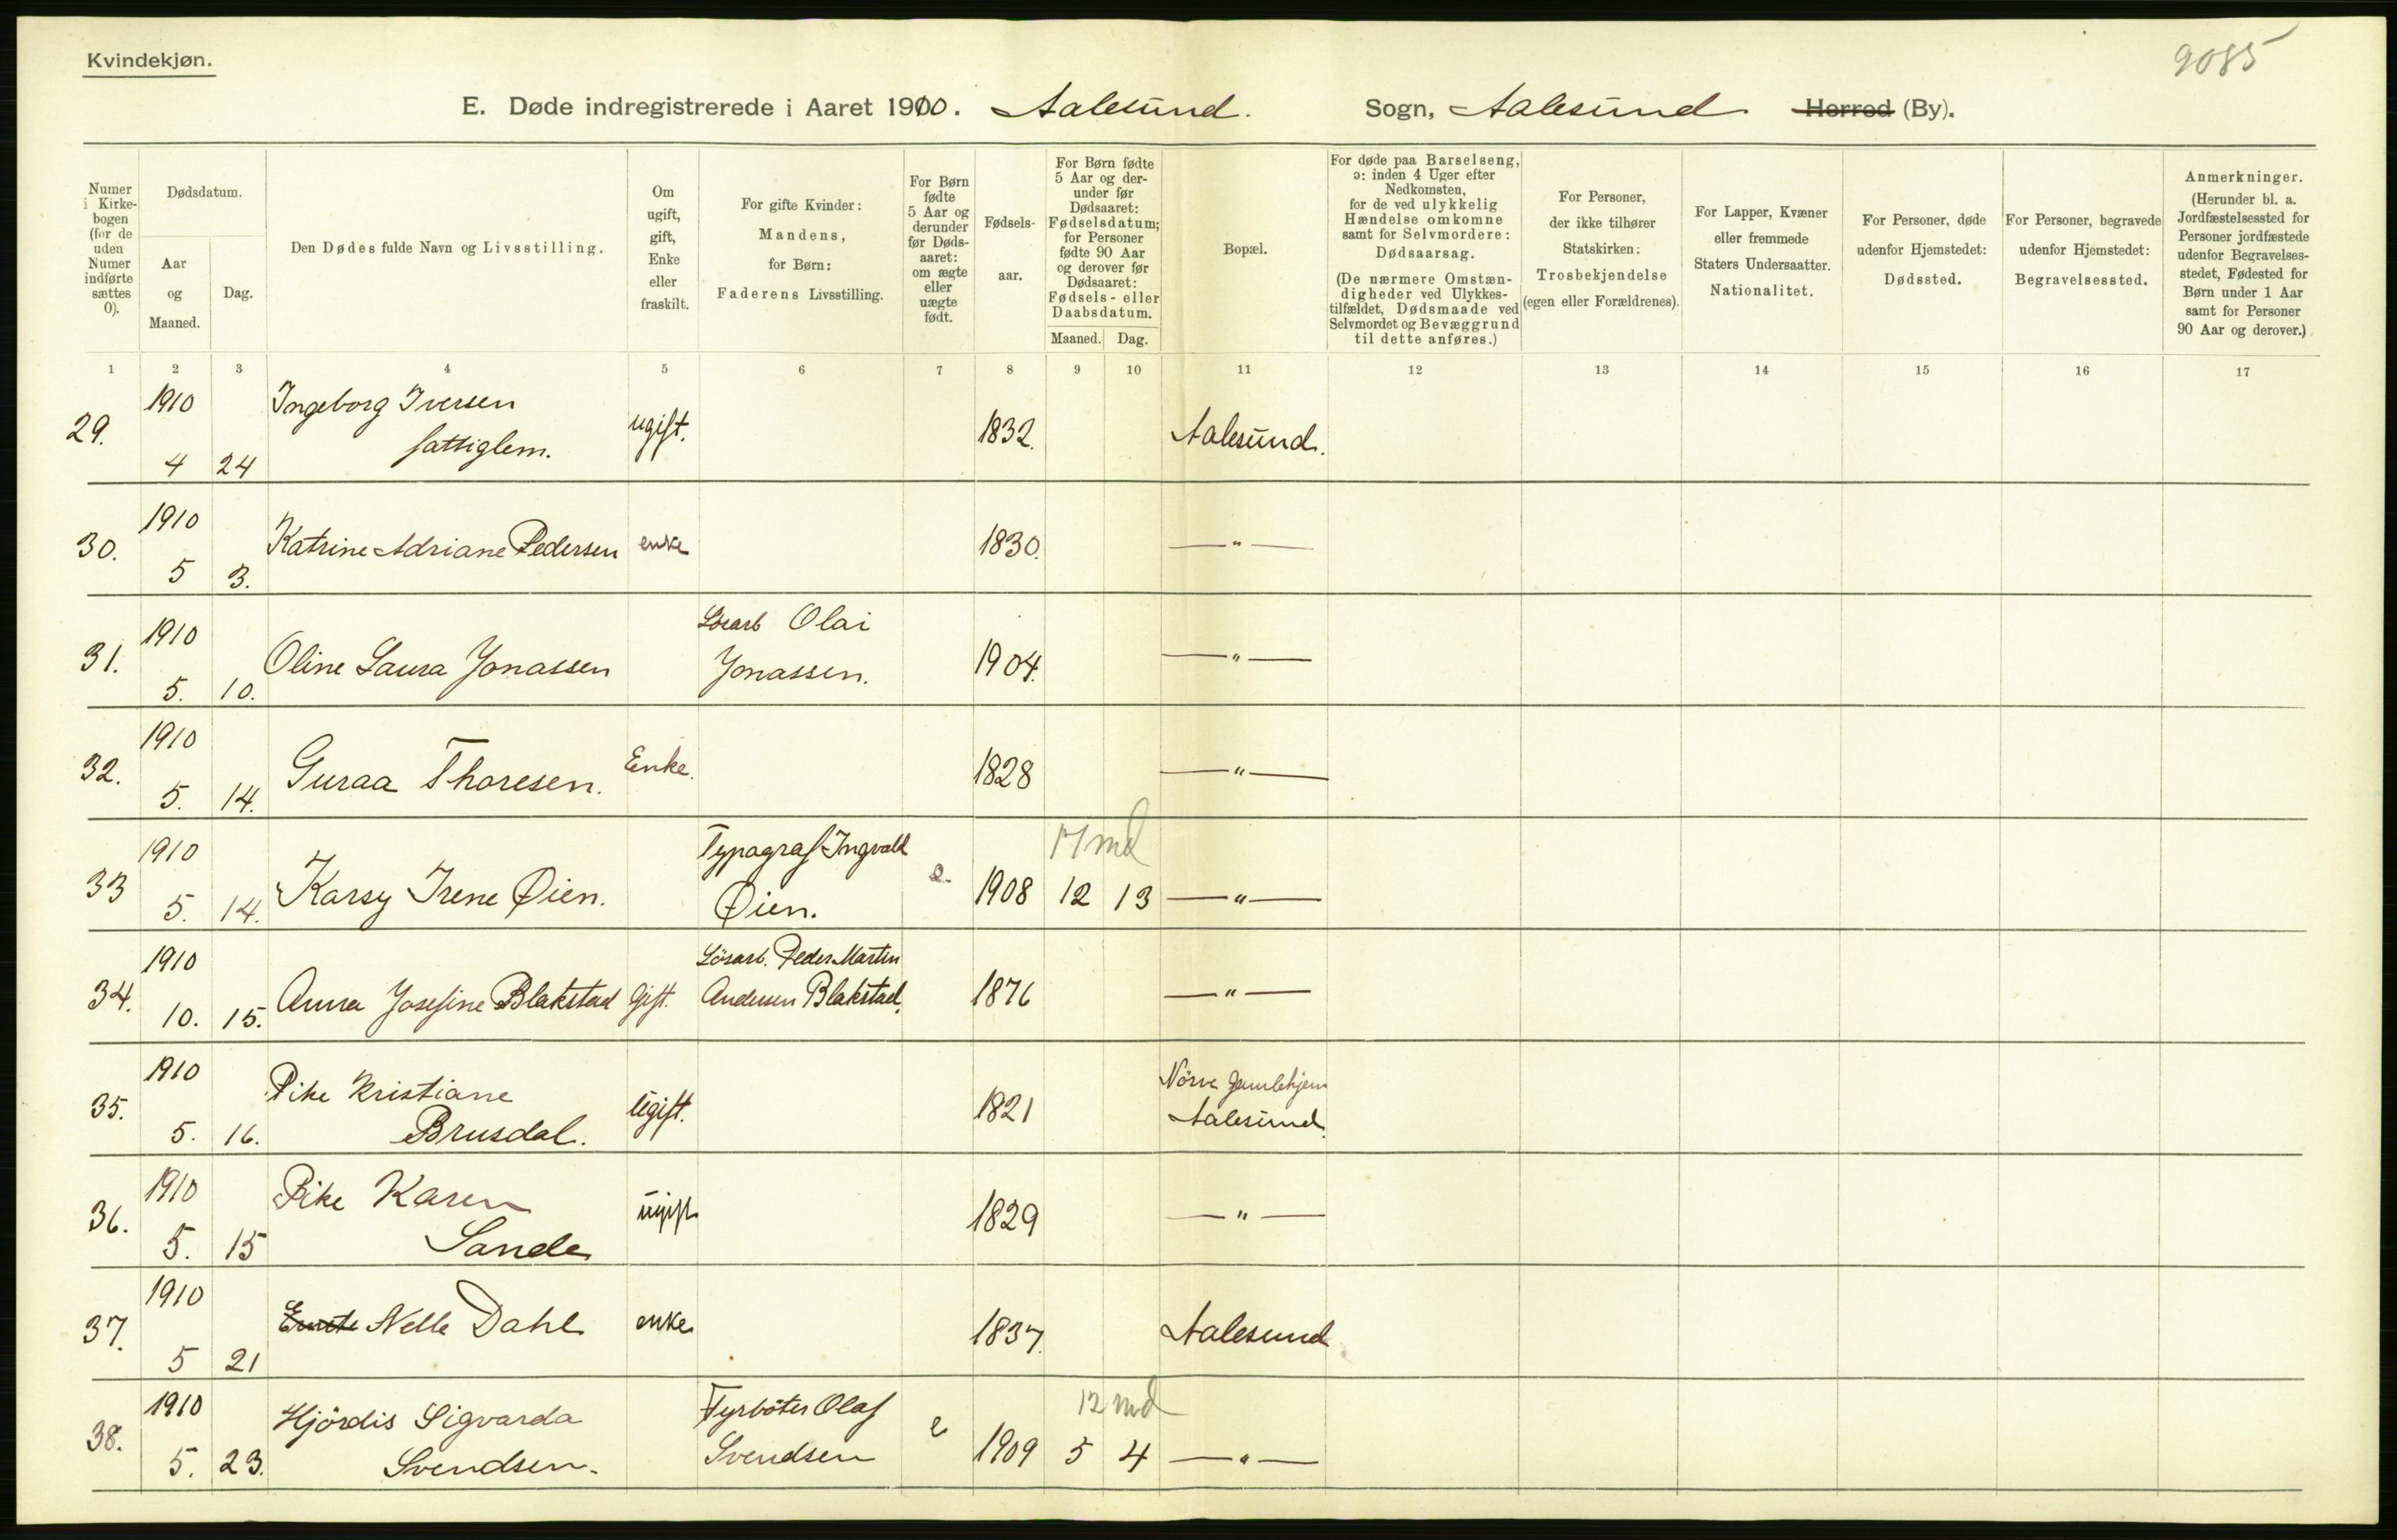 Kvindekjøn.
9085
E. Døde indregistrerede i Aaret 1910. Aalesund. Sogn, Aalesund Herred (By).
Numer i Kirkebogen (for de uden Numer indførte sættes 0).
Dødsdatum.
Aar og Maaned.
Dag.
Den Dødes fulde Navn og Livsstilling.
Om ugift, gift, Enke eller fraskilt.
For gifte Kvinder: Mandens, for Børn: Faderens Livsstilling.
For Børn fødte 5 Aar og derunder før Dødsaaret: om ægte eller uægte født.
Fødselsaar.
For Børn fødte 5 Aar og derunder før Dødsaaret: Fødselsdatum; for Personer fødte 90 Aar og derover før Dødsaaret: Fødsels- eller Daabsdatum.
Maaned. Dag.
Bopæl.
For døde paa Barselseng, ɔ: inden 4 Uger efter Nedkomsten, for de ved ulykkelig Hændelse omkomne samt for Selvmordere: Dødsaarsag.
(De nærmere Omstændigheder ved Ulykkestilfældet, Dødsmaade ved Selvmordet og Bevæggrund til dette anføres.)
For Personer, der ikke tilhører Statskirken: Trosbekjendelse (egen eller Forældrenes).
For Lapper, Kvæner eller fremmede Staters Undersaatter. Nationalitet.
For Personer, døde udenfor Hjemstedet: Dødssted.
For Personer, begravede udenfor Hjemstedet: Begravelsessted.
Anmerkninger. (Herunder bl. a. Jordfæstelsessted for Personer jordfæstede udenfor Begravelsesstedet, Fødested for Børn under 1 Aar samt for Personer 90 Aar og derover.)
1 2 3 4 5 6 7 8 9 10 11 12 13 14 15 16 17
29. 1910 4 24 Ingeborg Iversen fattiglem. ugift. 1832. Aalesund.
30. 1910 5 3. Katrine Adriane Pedersen enke 1830. —"—
31. 1910 5. 10. Oline Laura Jonassen Løsarb Olai Jonassen. 1904. —"—
32. 1910 5. 14. Guraa Thoresen. Enke. 1828 —"—
33 1910 5. 14. Karsy Irene Øien. Typograf Ingvald Øien. e. 1908 17 md 12 13 —"—
34. 1910 10. 15. Anna Josefine Blakstad Gift. Lösarb. Peder Martin Andersen Blakstad. 1876 —"—
35. 1910 5. 16. Pike Kristiane Brusdal. Ugift. 1821 Nörve Gamlehjem Aalesund.
36. 1910 5. 15 Pike Karen Sande ugift 1829 —"—
37. 1910 5 21 Nelle Dahl enke 1837. Aalesund
38. 1910 5. 23. Hjördis Sigvarda Svendsen. Fyrböter Olaf Svendsen e 1909 12 md 5 4 —"—